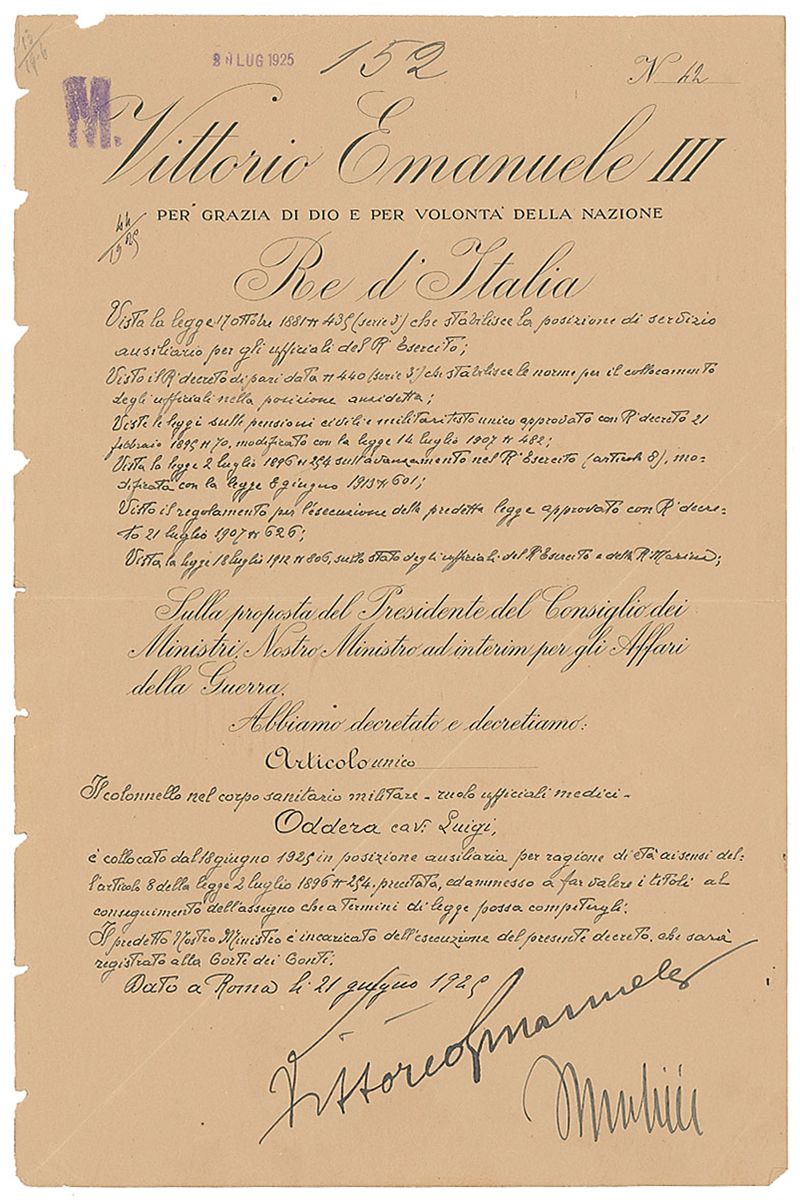 13
19-6
30 LUG 1925
152
N 42
M.
Vittorio Emanuele III
PER GRAZIA DI DIO E PER VOLONTA' DELLA NAZIONE
44
1925
Re d'Italia
Vista la legge 17 ottobre 1881 n 435 (serie 3ª) che stabilisce la posizione di servizio
ausiliario per gli ufficiali del R° Esercito;
Visto il R° decreto di pari data n 440 (serie 3ª) che stabilisce le norme per il collocamento
degli ufficiali nella posizione anzidetta;
Viste le leggi sulle pensioni civili e militari testo unico approvato con R° decreto 21
febbraio 1895 n 70, modificato con la legge 14 luglio 1907 n 482;
Vista la legge 2 luglio 1896 n 254 sull'avanzamento nel R° Esercito (articolo 8), mo-
dificata con la legge 8 giugno 1913 n 601;
Visto il regolamento per l'esecuzione della predetta legge approvato con R° decre-
to 21 luglio 1907 n 626;
Vista la legge 18 luglio 1912 n 806, sullo stato degli ufficiali del R° Esercito e della R° Marina;
Sulla proposta del Presidente del Consiglio dei
Ministri, Nostro Ministro ad interim per gli Affari
della Guerra.
Abbiamo decretato e decretiamo:
Articolo unico
Il colonnello nel corpo sanitario militare - ruolo ufficiali medici -
Oddera cav: Luigi,
è collocato dal 18 giugno 1925 in posizione ausiliaria per ragione di età ai sensi del-
l'articolo 8 della legge 2 luglio 1896 n 254. precitata, ed ammesso a far valere i titoli al
conseguimento dell'assegno che a termini di legge possa competergli.
Il predetto Nostro Ministro è incaricato dell'esecuzione del presente decreto, che sarà
registrato alla Corte dei Conti.
Dato a Roma li 21 giugno 1925
Vittorio Emanuele
Mussolini